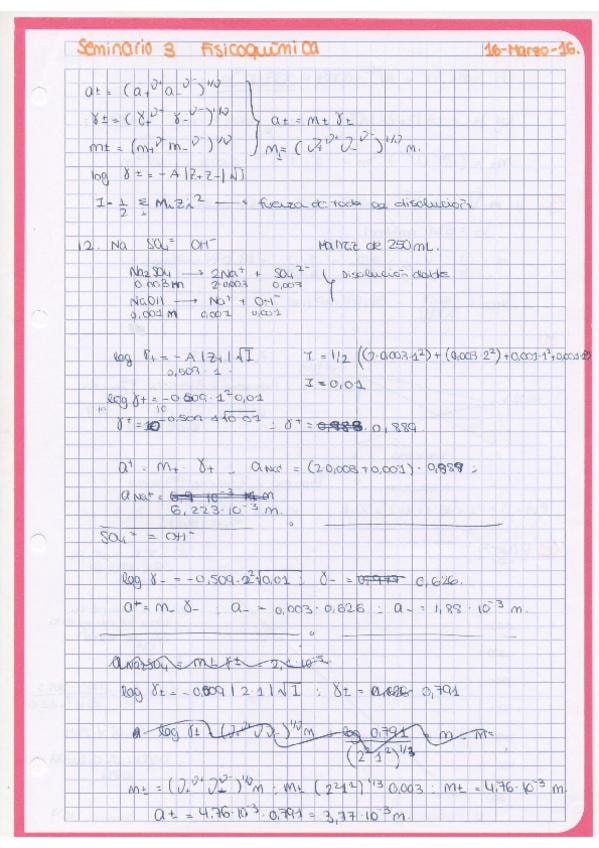 Seminario 3 Fisicoquímica 16-Marzo-16.
a± = (a+^ν+ a-^ν-)^1/ν
γ± = (γ+^ν+ γ-^ν-)^1/ν a± = m± γ±
m± = (m+^ν+ m-^ν-)^1/ν m± = (ν+^ν+ ν-^ν-)^1/ν m.
log γ± = -A |Z+Z-| √I
I = 1/2 Σi Mi Zi² → fuerza de toda la disolución
12. Na SO4= OH- Matraz de 250mL.
Na2SO4 → 2Na+ + SO4 2- Disolución doble
0.003m 2·0.003 0,003
NaOH → Na+ + OH-
0,001 m 0.001 0,001
log γ+ = -A |Z+| √I I = 1/2 ((2·0.003·1²) + (0,003·2²) + 0,001·1² + 0,001·1²)
0,509 · 1 I = 0,01
log γ+ = -0.509 · 1² 0,01
γ+ = 10^-0.509·1√0.01 ; γ+ = 0,889.
a+ = m+ · γ+ aNa+ = (2·0,003+0,001) · 0,889 ;
aNa+ =
6,223·10^-3 m.
SO4= = OH-
log γ- = -0,509·2²√0,01 ; γ- = 0,626.
a+ = m- γ- ; a- = 0,003 · 0,626 ; a- = 1,88 · 10^-3 m.
aNa2SO4 = m± γ± =
log γ± = -0,509 |2·1| √I ; γ± = 0,791
log γ± (ν+^ν+ ν-^ν-)^1/ν m log 0,791 = m
(2²1²)^1/3
m± = (ν+^ν+ ν-^ν-)^1/ν m ; m± (2²1¹)^1/3 0,003 ; m± = 4,76·10^-3 m.
a± = 4,76·10^-3 · 0,791 = 3,77·10^-3 m.